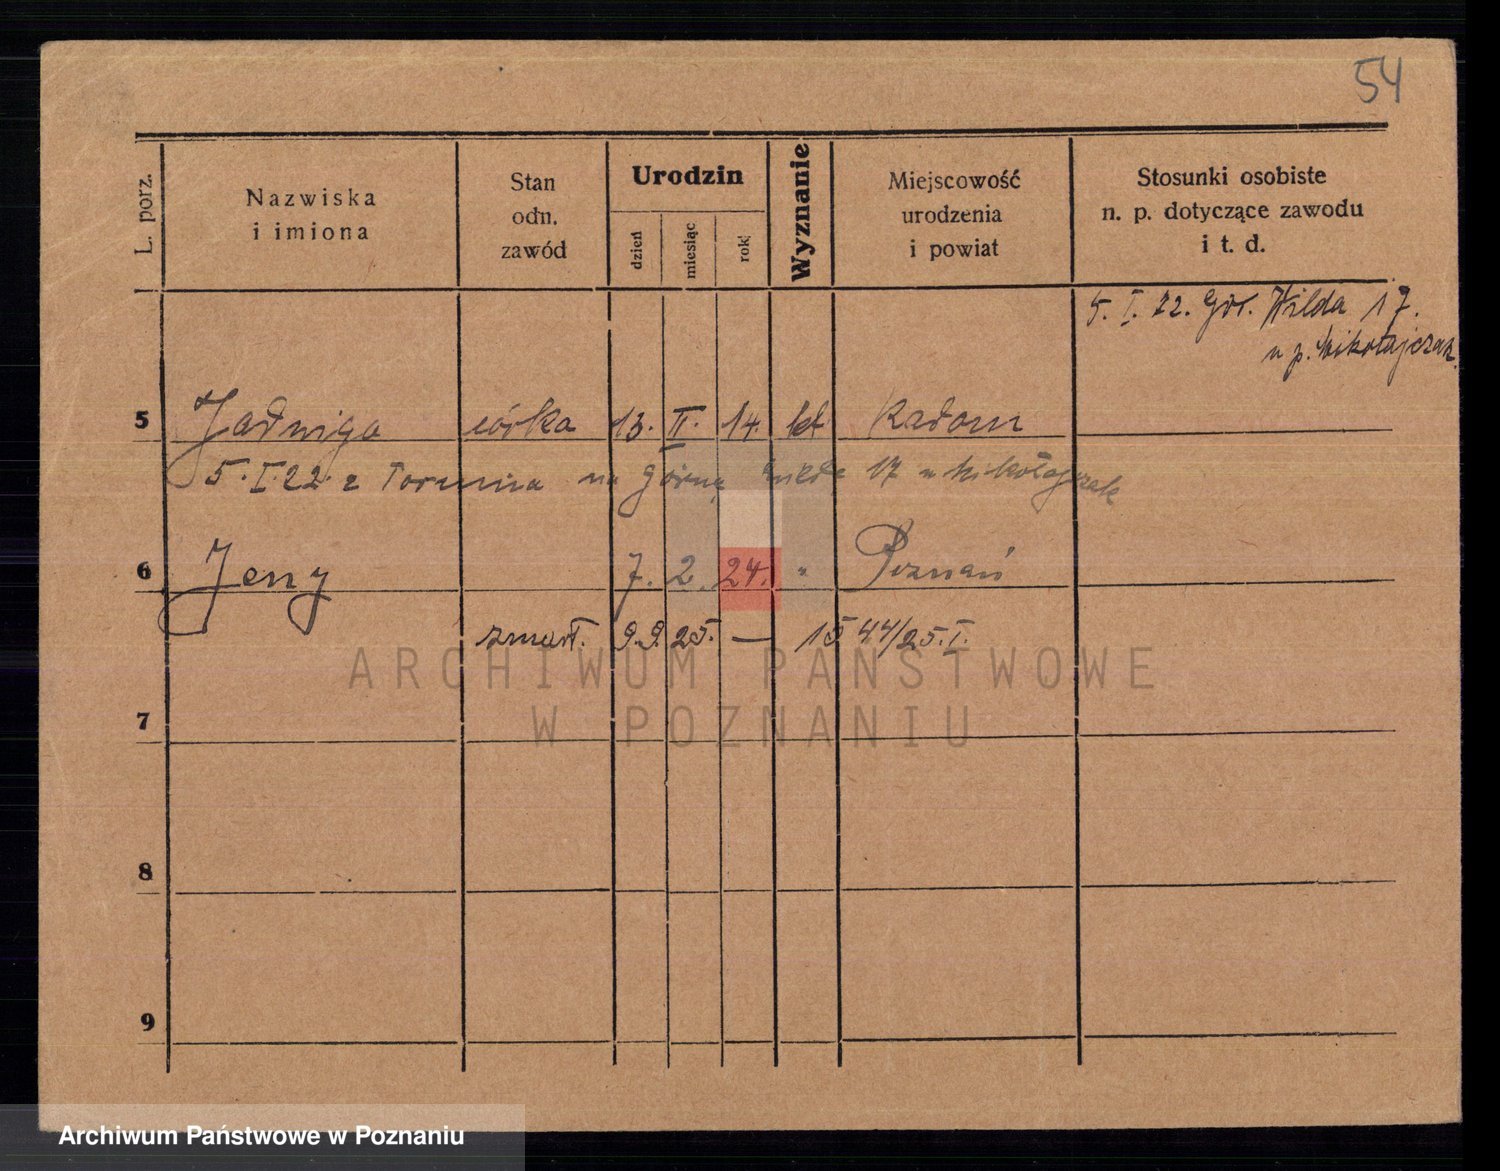 54
L. porz.
Nazwiska
i imiona
Stan
odn.
zawód
Urodzin
dzień
miesiąc
rok
Wyznanie
Miejscowość
urodzenia
i powiat
Stosunki osobiste
n. p. dotyczące zawodu
i t. d.
5. I. 22. Gór. Wilda 17.
u p. Mikołajczak
5 Jadwiga córka 13. II. 14. kt Radom
5. I. 22. z Torunia na Górną Wildę 17 u Mikołajczak
6 Jerzy 7. 2. 24. " Poznań
zmarł. 9. 9. 25. — 1544/25. I.
ARCHIWUM PAŃSTWOWE
W POZNANIU
7
8
9
Archiwum Państwowe w Poznaniu